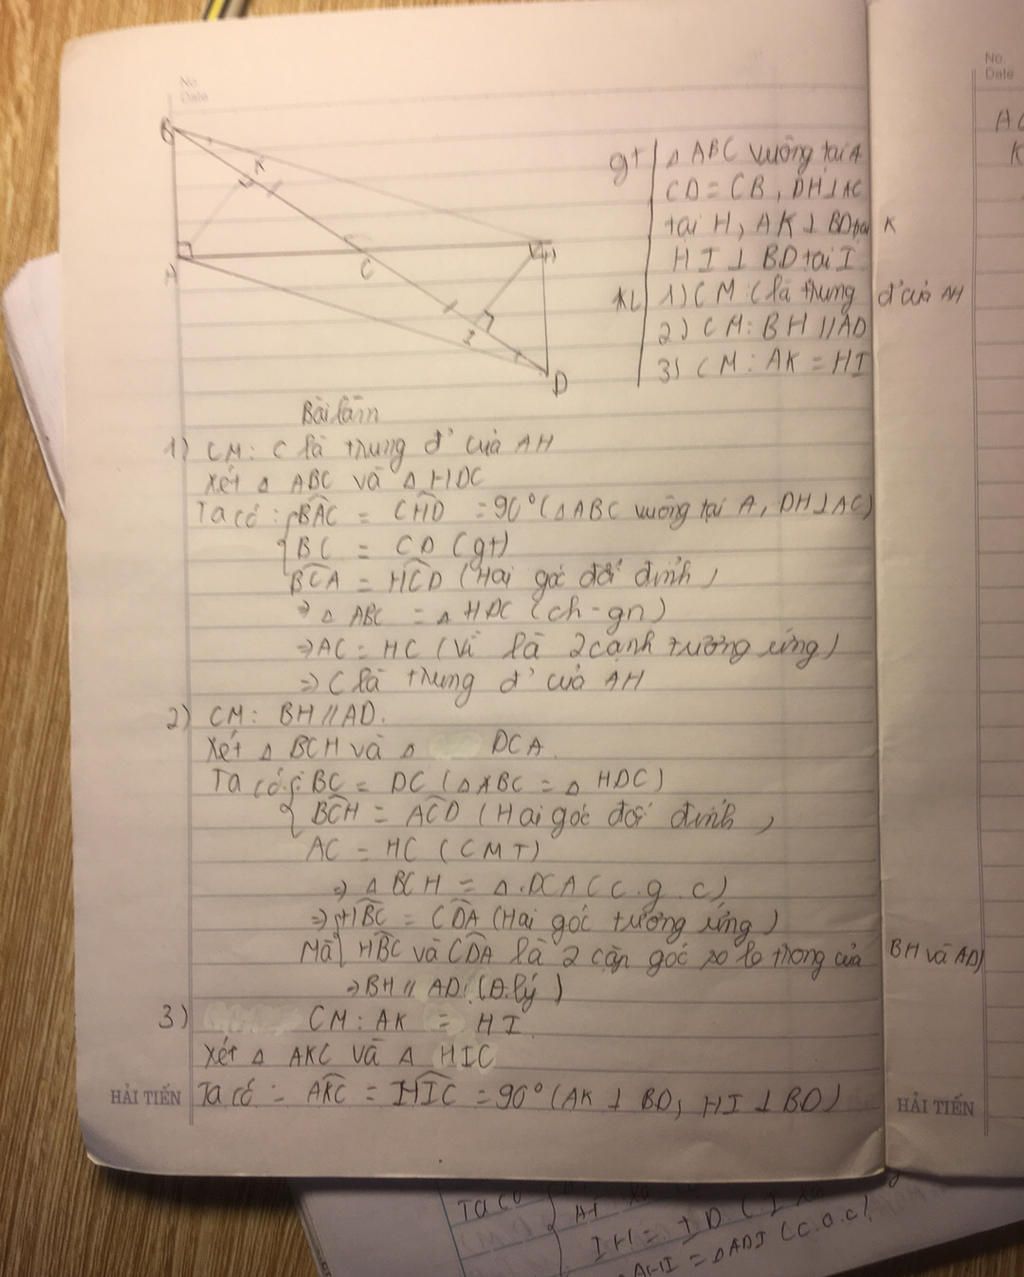 No.
Date
B
K
A
C
H
I
D
gt | Δ ABC vuông tại A
CD = CB, DH⊥AC
tại H, AK ⊥ BD tại K
HI ⊥ BD tại I
KL | 1) CM: C là trung đ' của AH
2) CM: BH // AD
3) CM: AK = HI
Bài làm
1) CM: C là trung đ' của AH
Xét Δ ABC và Δ HDC
Ta có: { BAC = CHD = 90° (Δ ABC vuông tại A, DH⊥AC)
BC = CD (gt)
BCA = HCD (Hai góc đối đỉnh)
⇒ Δ ABC = Δ HDC (ch-gn)
⇒ AC = HC (Vì là 2 cạnh tương ứng)
⇒ C là trung đ' của AH
2) CM: BH // AD.
Xét Δ BCH và Δ DCA
Ta có: { BC = DC (Δ ABC = Δ HDC)
BCH = ACD (Hai góc đối đỉnh)
AC = HC (CMT)
⇒ Δ BCH = Δ DCA (c.g.c)
⇒ HBC = CDA (Hai góc tương ứng)
Mà HBC và CDA là 2 cặp góc so le trong của BH và AD)
⇒ BH // AD (Đ.lý)
3) CM: AK = HI
Xét Δ AKC và Δ HIC
Ta có: AKC = HIC = 90° (AK ⊥ BD, HI ⊥ BD)
HẢI TIẾN
No.
Date
AC
K
HẢI TIẾN
Ta có
IH = ID
AHI = Δ ADI (c.g.c)